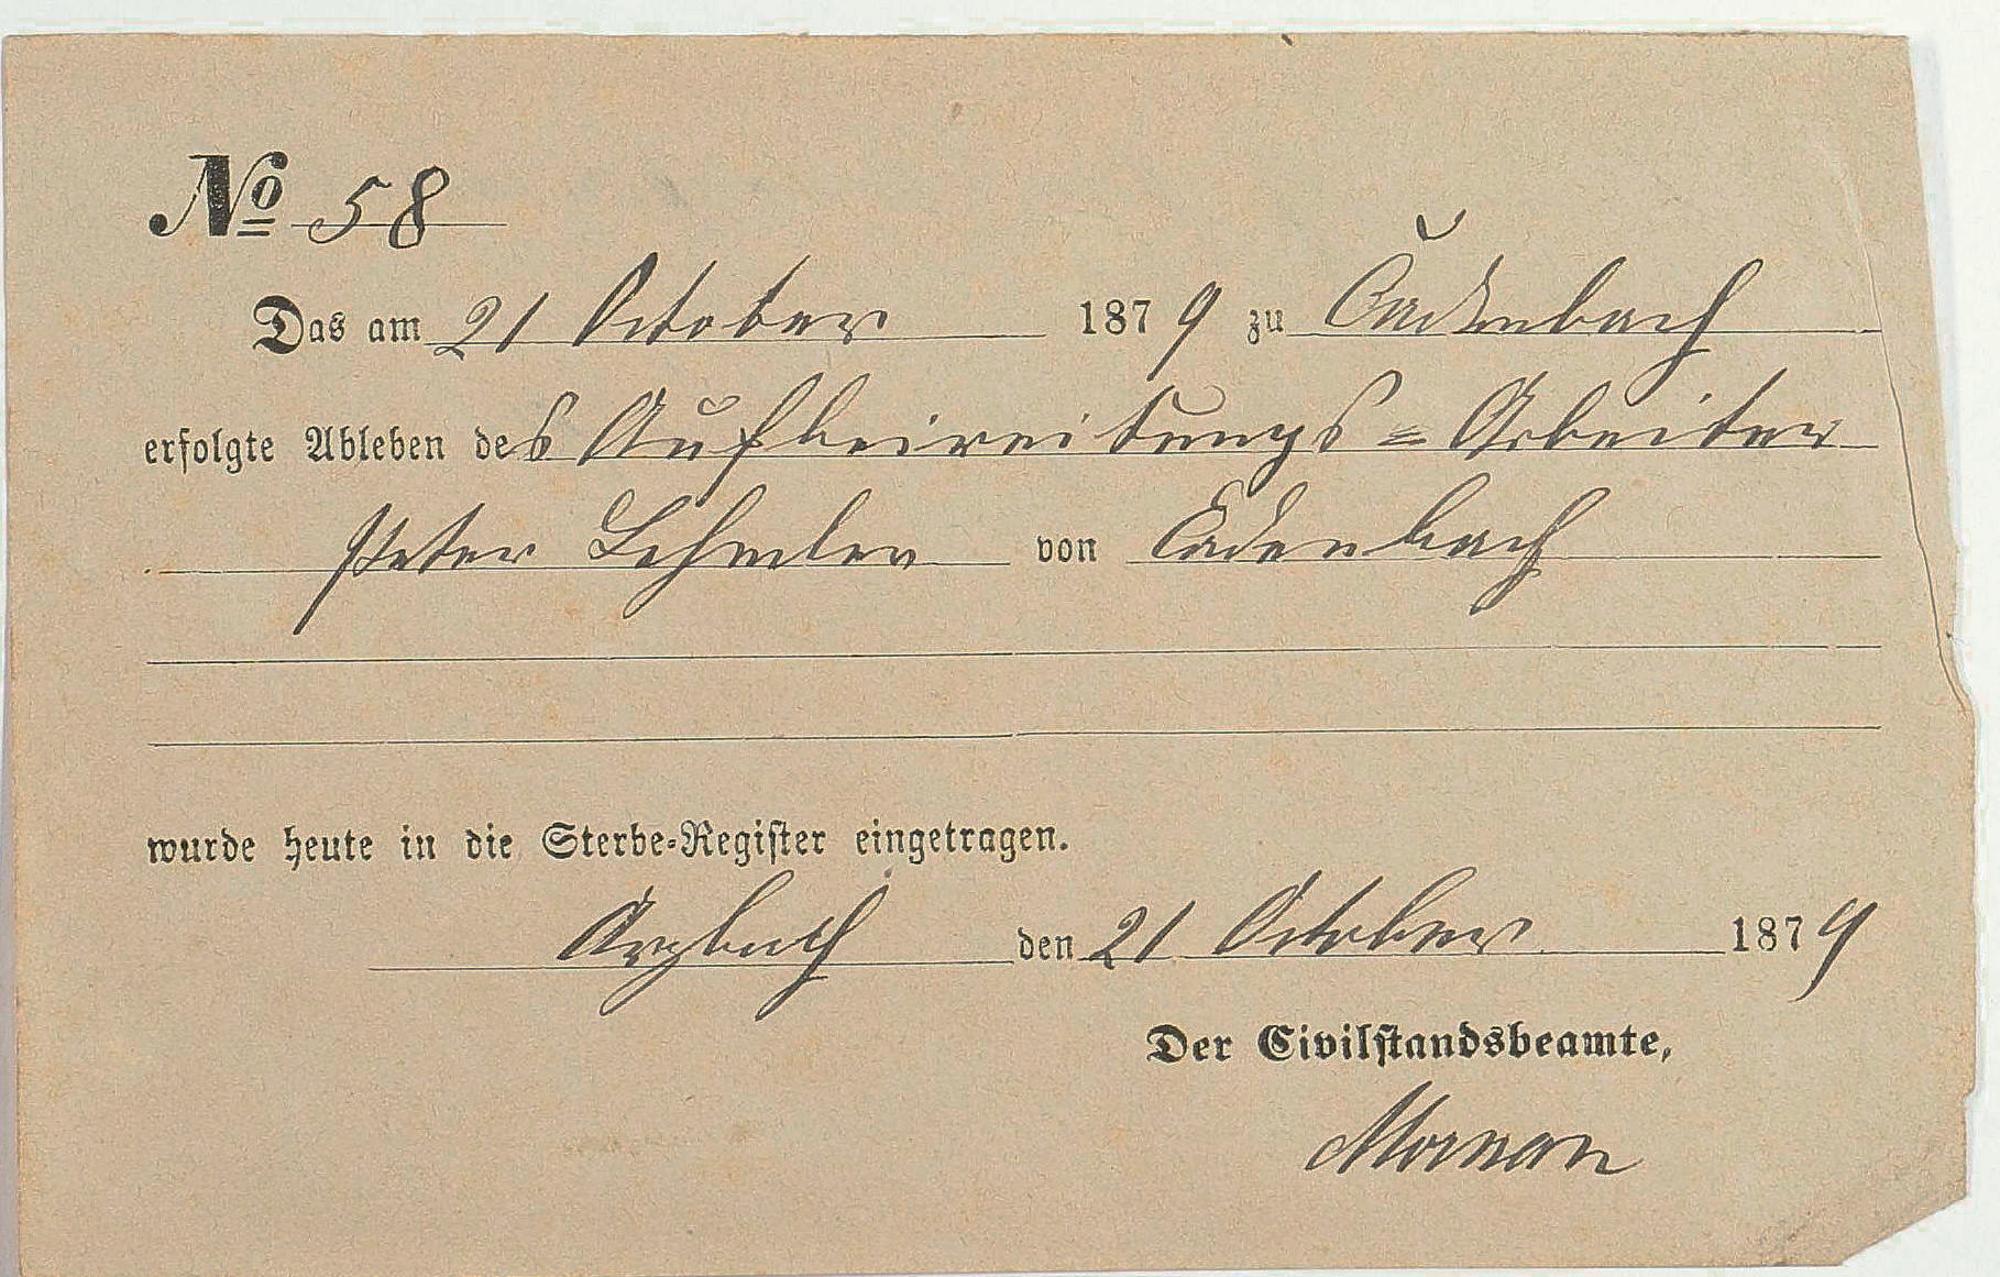 No 58
Das am 21 October 1879 zu Cadenbach
erfolgte Ableben des Aufbeireitungs = Arbeiter
Peter Lehmler von Cadenbach
wurde heute in die Sterbe-Register eingetragen.
Arzbach den 21 October 1879
Der Civilstandsbeamte,